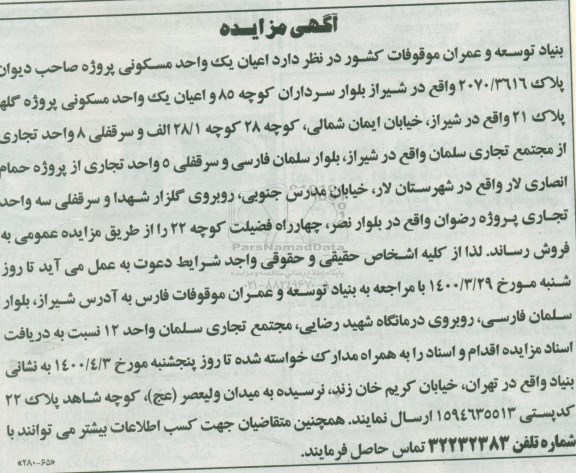 آگهی مزایده
بنیاد توسعه و عمران موقوفات کشور در نظر دارد اعیان یک واحد مسکونی پروژه صاحب دیوان
پلاک ۲۰۷۰/۳۶۱۶ واقع در شیراز بلوار سرداران کوچه ۸۵ و اعیان یک واحد مسکونی پروژه گلها
پلاک ۲۱ واقع در شیراز، خیابان ایمان شمالی، کوچه ۲۸ کوچه ۲۸/۱ الف و سرقفلی ۸ واحد تجاری
از مجتمع تجاری سلمان واقع در شیراز، بلوار سلمان فارسی و سرقفلی ۵ واحد تجاری از پروژه حمام
انصاری لار واقع در شهرستان لار، خیابان مدرس جنوبی، روبروی گلزار شهدا و سرقفلی سه واحد
تجاری پروژه رضوان واقع در بلوار نصر، چهارراه فضیلت کوچه ۲۲ را از طریق مزایده عمومی به
فروش رساند. لذا از کلیه اشخاص حقیقی و حقوقی واجد شرایط دعوت به عمل می آید تا روز
شنبه مورخ ۱۴۰۰/۳/۲۹ با مراجعه به بنیاد توسعه و عمران موقوفات فارس به آدرس شیراز، بلوار
سلمان فارسی، روبروی درمانگاه شهید رضایی، مجتمع تجاری سلمان واحد ۱۲ نسبت به دریافت
اسناد مزایده اقدام و اسناد را به همراه مدارک خواسته شده تا روز پنجشنبه مورخ ۱۴۰۰/۴/۳ به نشانی
بنیاد واقع در تهران، خیابان کریم خان زند، نرسیده به میدان ولیعصر (عج)، کوچه شاهد پلاک ۲۲
کدپستی ۱۵۹۴۶۳۵۵۱۳ ارسال نمایند. همچنین متقاضیان جهت کسب اطلاعات بیشتر می توانند با
شماره تلفن ۳۲۲۳۲۳۸۳ تماس حاصل فرمایند.
«۲۸۰-۶۵»
ParsNamadData
پایگاه اطلاع رسانی مناقصه و مزایده
۰۲۱-۸۸۳۴۹۶۷۰